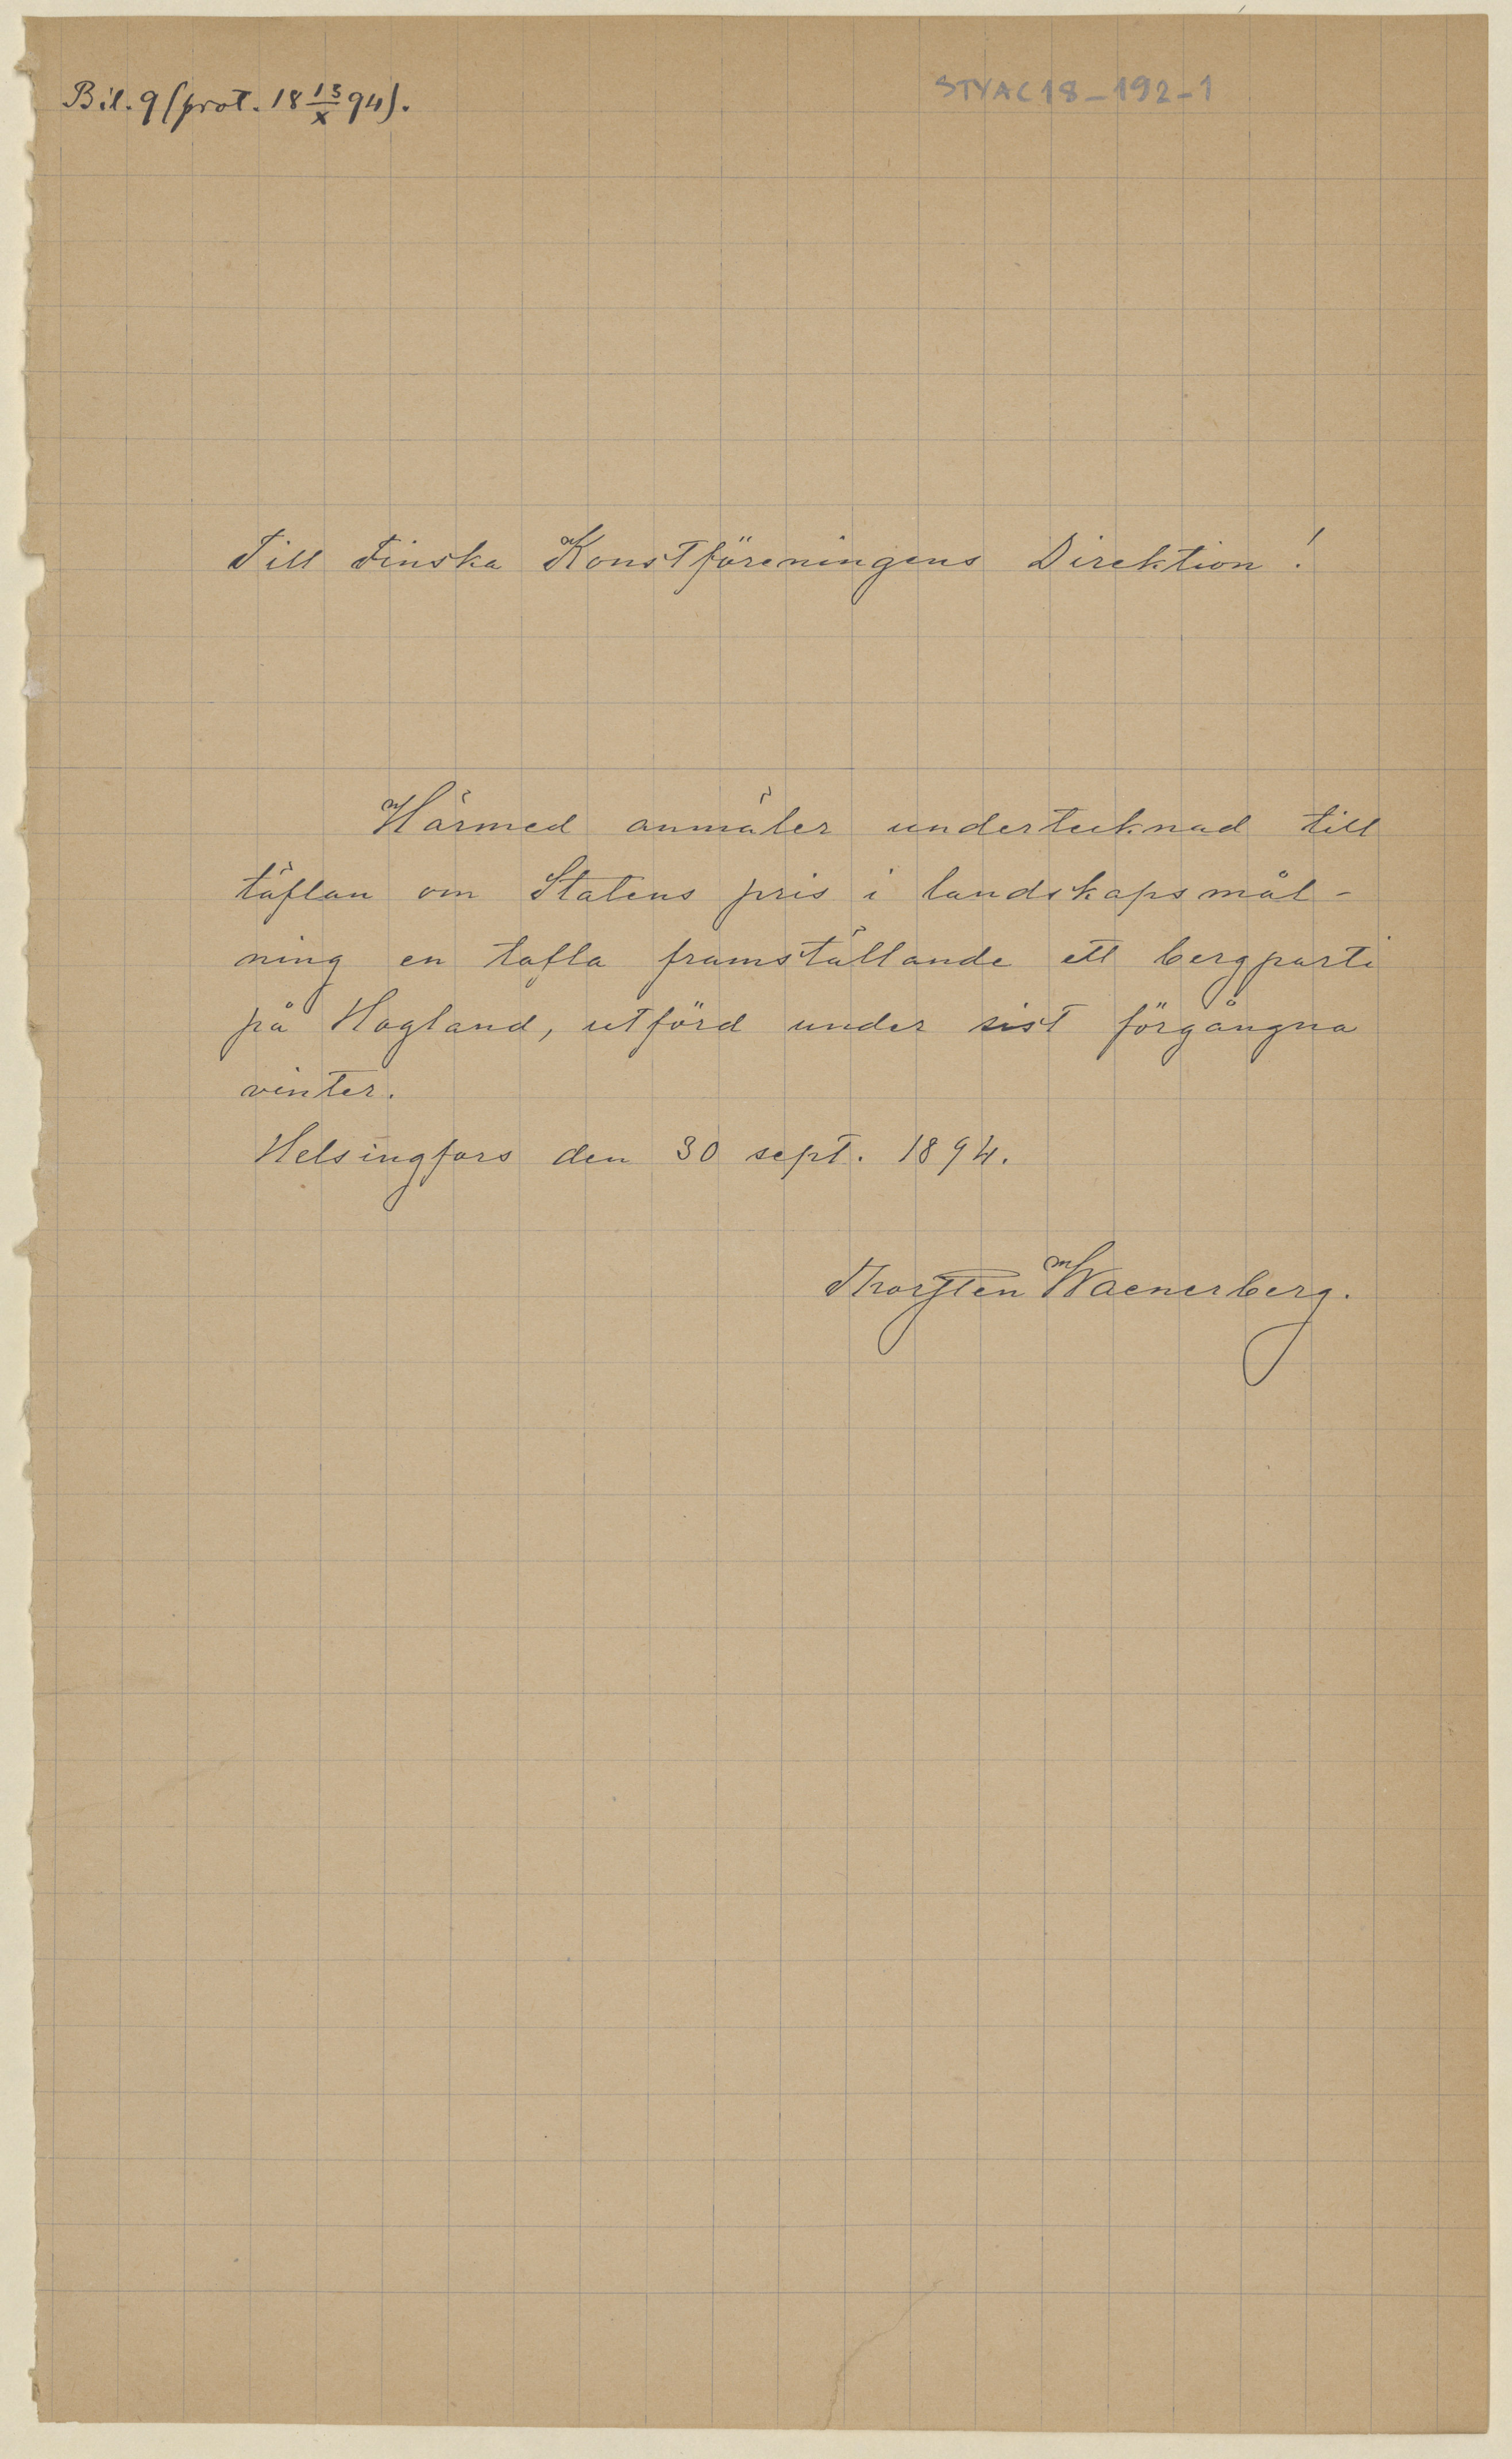 Bil. 9 (prot. 18 13/X 94).
STYAC18-192-1
Till Finska Konstföreningens Direktion!
Härmed anmäler undertecknad till
täflan om Statens pris i landskapsmål-
ning en tafla framställande ett bergparti
på Hogland, utförd under sist förgångna
vinter.
Helsingfors den 30 sept. 1894.
Thorsten Waenerberg.